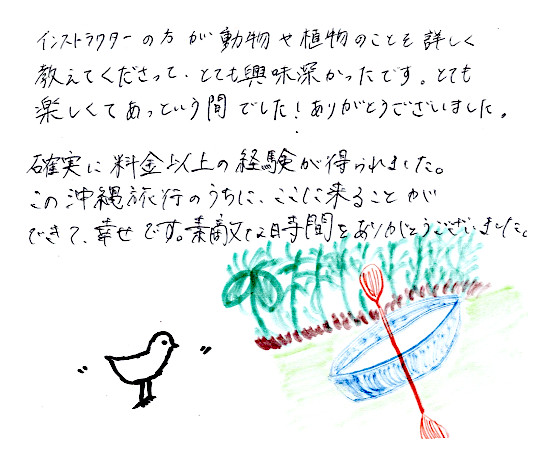 インストラクターの方が動物や植物のことを詳しく
教えてくださって、とても興味深かったです。とても
楽しくてあっという間でした！ありがとうございました。
確実に料金以上の経験が得られました。
この沖縄旅行のうちに、ここに来ることが
できて、幸せです。素敵な時間をありがとうございました。